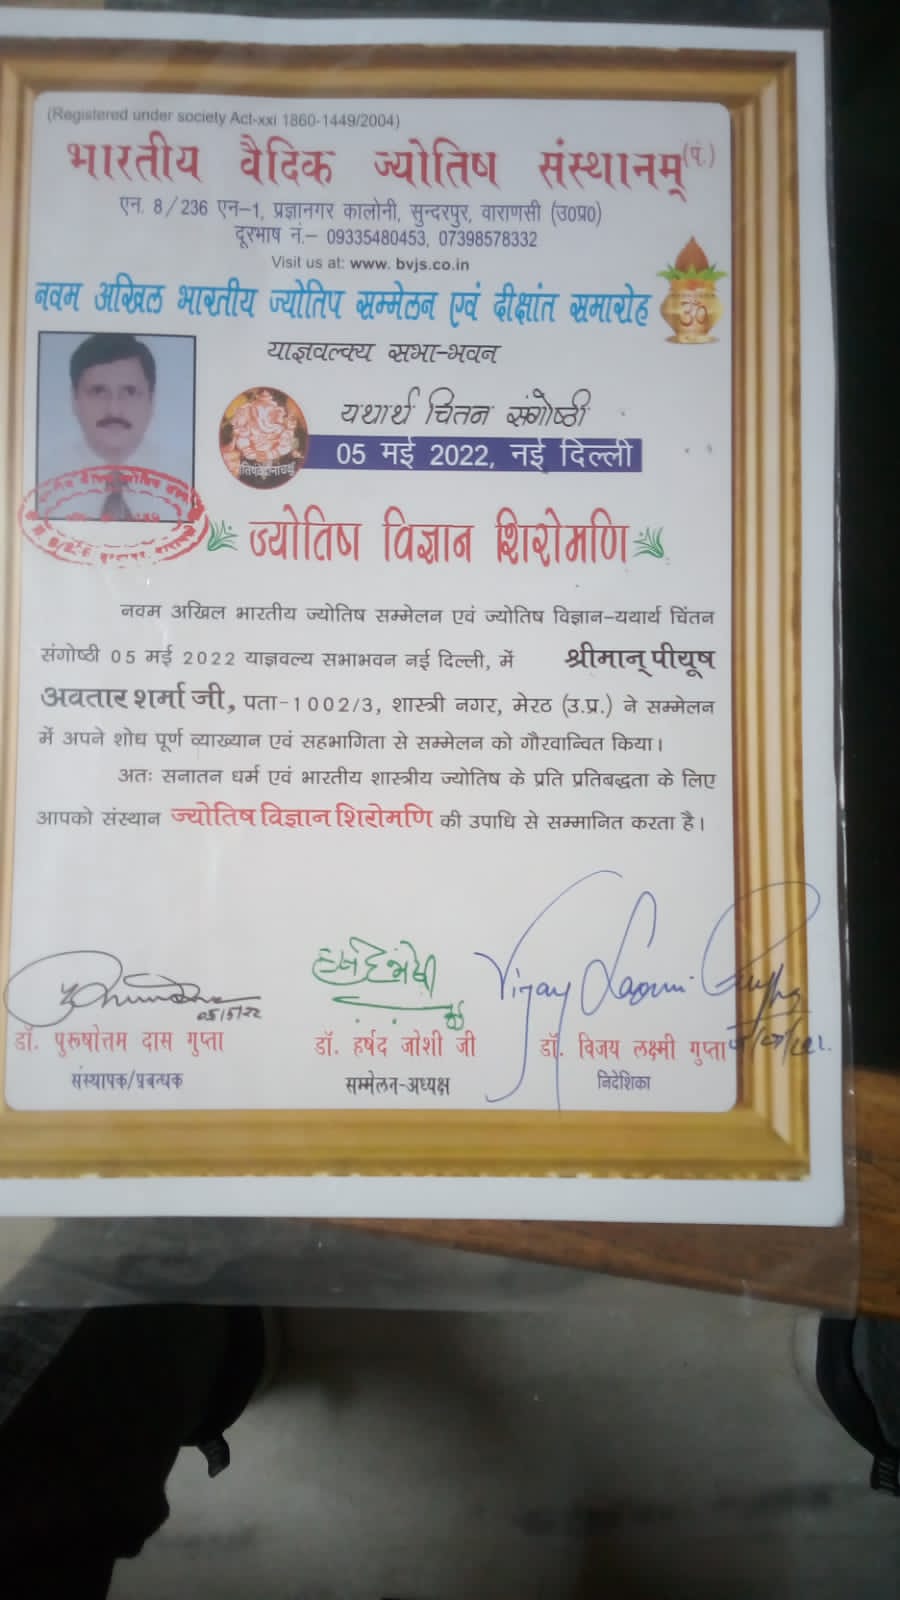 (Registered under society Act-xxi 1860-1449/2004)
भारतीय वैदिक ज्योतिष संस्थानम् (पं.)
एन. 8/236 एन-1, प्रज्ञानगर कालोनी, सुन्दरपुर, वाराणसी (उ0प्र0)
दूरभाष नं.– 09335480453, 07398578332
Visit us at: www. bvjs.co.in
नवम अखिल भारतीय ज्योतिष सम्मेलन एवं दीक्षांत समारोह
ॐ
याज्ञवल्क्य सभा-भवन
यथार्थ चिंतन संगोष्ठी
05 मई 2022, नई दिल्ली
ज्योतिष विज्ञान शिरोमणि
नवम अखिल भारतीय ज्योतिष सम्मेलन एवं ज्योतिष विज्ञान–यथार्थ चिंतन
संगोष्ठी 05 मई 2022 याज्ञवल्य सभाभवन नई दिल्ली, में श्रीमान् पीयूष
अवतार शर्मा जी, पता-1002/3, शास्त्री नगर, मेरठ (उ.प्र.) ने सम्मेलन
में अपने शोध पूर्ण व्याख्यान एवं सहभागिता से सम्मेलन को गौरवान्वित किया।
अतः सनातन धर्म एवं भारतीय शास्त्रीय ज्योतिष के प्रति प्रतिबद्धता के लिए
आपको संस्थान ज्योतिष विज्ञान शिरोमणि की उपाधि से सम्मानित करता है।
05/5/22
Vijay Laxmi Gupta
डॉ. पुरूषोत्तम दास गुप्ता
संस्थापक/प्रबन्धक
डॉ. हर्षद जोशी जी
सम्मेलन-अध्यक्ष
डॉ. विजय लक्ष्मी गुप्ता
निदेशिका